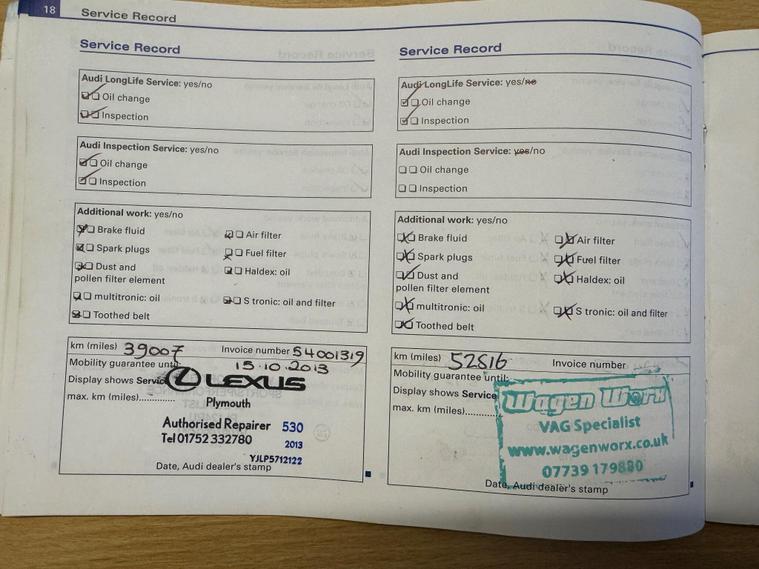 18 Service Record
Service Record
Audi LongLife Service: yes/no
Oil change
Inspection
Audi Inspection Service: yes/no
Oil change
Inspection
Additional work: yes/no
Brake fluid
Air filter
Spark plugs
Fuel filter
Dust and
pollen filter element
Haldex: oil
multitronic: oil
S tronic: oil and filter
Toothed belt
km (miles) 39007 Invoice number 54001319
Mobility guarantee until: 15.10.2013
Display shows Servic
LEXUS
max. km (miles)
Plymouth
Authorised Repairer 530
Tel 01752 332780 2013
YJLP5712122
Date, Audi dealer's stamp
Service Record
Audi LongLife Service: yes/no
Oil change
Inspection
Audi Inspection Service: yes/no
Oil change
Inspection
Additional work: yes/no
Brake fluid
Air filter
Spark plugs
Fuel filter
Dust and
pollen filter element
Haldex: oil
multitronic: oil
S tronic: oil and filter
Toothed belt
km (miles) 52816 Invoice number
Mobility guarantee until:
Display shows Service
max. km (miles)
Wagen Worx
VAG Specialist
www.wagenworx.co.uk
07739 179880
Date, Audi dealer's stamp